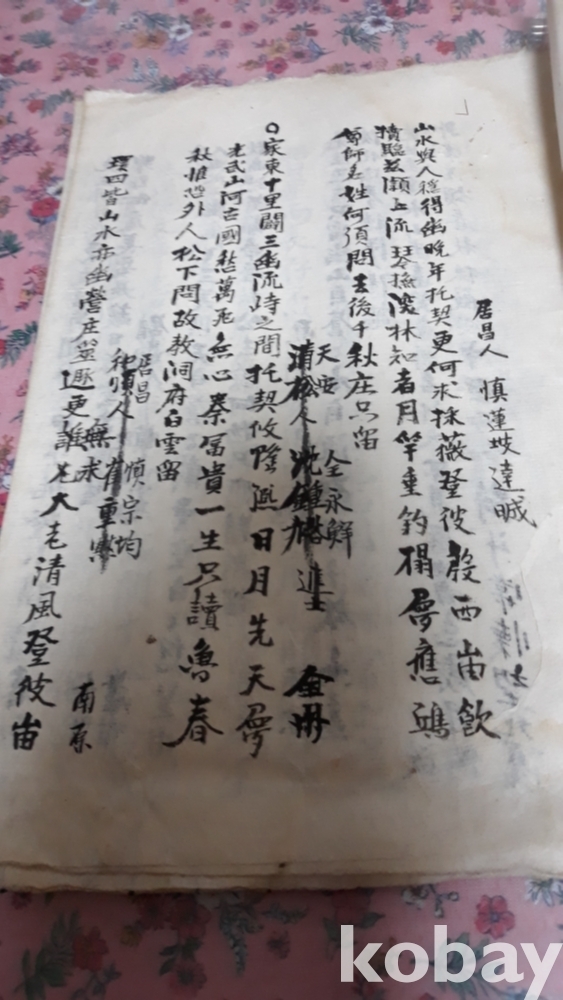 居昌人 愼蓮坡達晠
山水與人穩得幽晩年托契更何求採薇登彼殷西峀飮
犢臨玆潁上流琴掩濃林知者月竿垂釣榻夢應鷗
姓何須問去後千秋庄只留
天安 全永鮮
淸松人沈鍾 進士
○家東十里闢三幽流峙之間托契攸隆熙日月先天夢
光武山河古國愁萬死無心秦富貴一生只讀魯春
秋惟恐外人松下問故敎洞府白雲留
居昌 愼宗均
和順人 重熙
南原
環四皆山水亦幽營庄 趣更誰 大老淸風登彼峀
無求
kobay